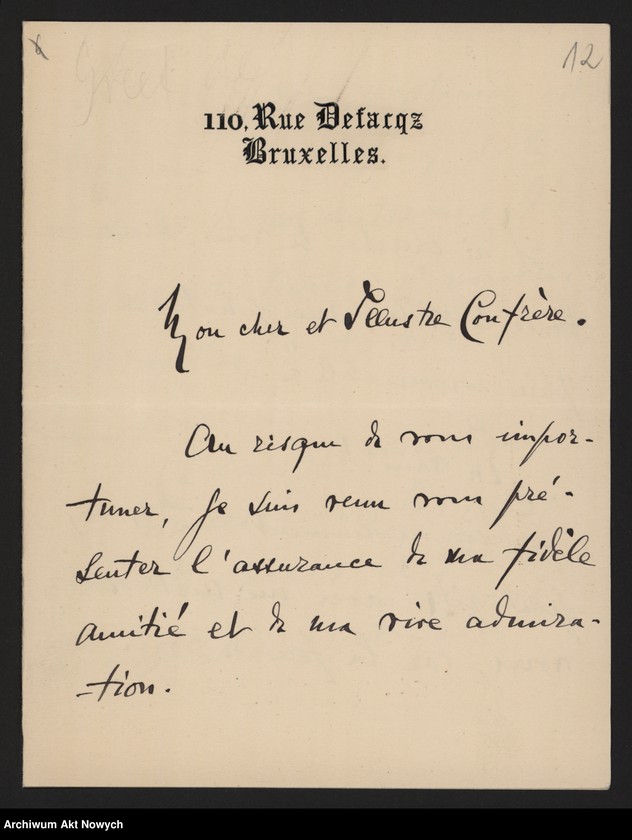 12
110, Rue Defacqz
Bruxelles.
Mon cher et Illustre Confrère.
Au risque de vous impor-
tuner, je suis venu vous pré-
senter l'assurance de ma fidèle
amitié et de ma vive admira-
-tion.
Archiwum Akt Nowych